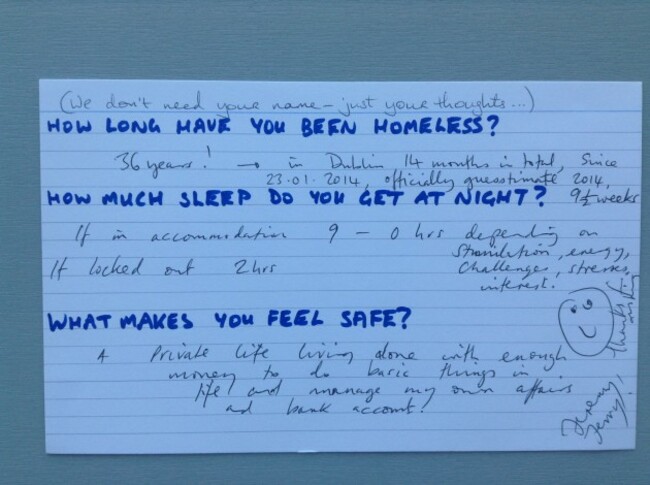 (We don't need your name - just your thoughts...)
HOW LONG HAVE YOU BEEN HOMELESS?
36 years! → in Dublin 14 months in total, since
23.01.2014, officially guesstimate 2014,
HOW MUCH SLEEP DO YOU GET AT NIGHT? 9½ weeks
If in accommodation 9 - 0 hrs depending on
stimulation, energy,
If locked out 2hrs challenges, stresses,
interest.
WHAT MAKES YOU FEEL SAFE?
A private life living alone with enough
money to do basic things in
life and manage my own affairs
and bank account!
Thanks for asking
Jeremy,
Jerry.